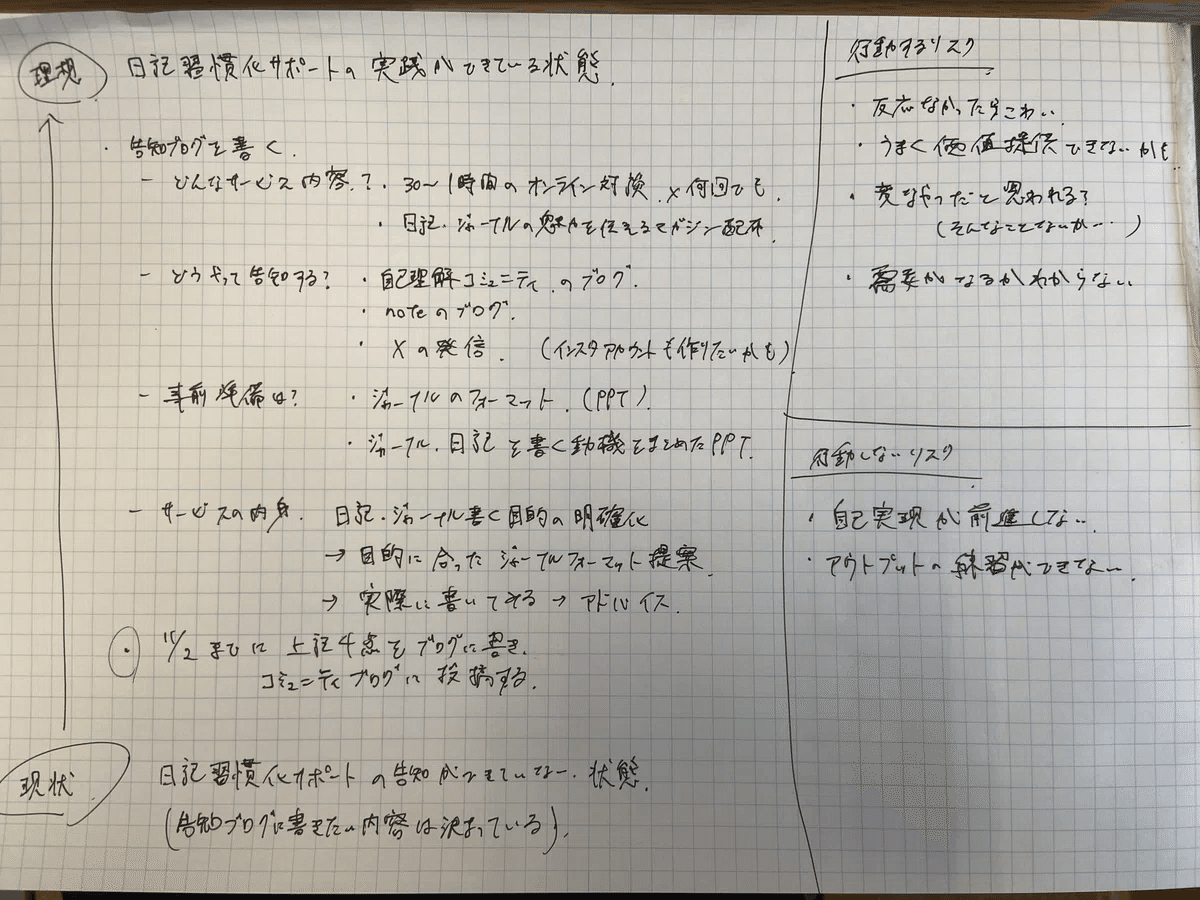 理想
日記習慣化サポートの実践ができている状態.
・告知ブログを書く.
- どんなサービス内容.?・30〜1時間のオンライン対談.×何回でも.
・日記.ジャーナルの魅力を伝えるマガジン配布.
- どうやって告知する?・自己理解コミュニティのブログ.
・noteのブログ.
・Xの発信.(インスタアカウントも作りたいかも)
- 事前準備は?・ジャーナルのフォーマット.(PPT).
・ジャーナル.日記を書く動機をまとめたPPT.
- サービスの内身.日記.ジャーナル書く目的の明確化
→目的に合ったジャーナルフォーマット提案.
→実際に書いてみる→アドバイス.
・ 11/2までに上記4点をブログに書き.
コミュニティブログに投稿する.
現状
日記習慣化サポートの告知ができていない.状態.
(告知ブログに書きたい内容は決まっている).
行動するリスク
・反応なかったらこわい.
・うまく価値提供できないかも
・変なやつだと思われる?
(そんなことないか…)
・需要がなるかわからない
行動しないリスク
・自己実現が前進しない.
・アウトプットの練習ができない.